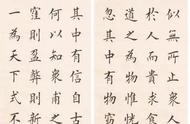 似無所止眾人
於人而貴求食
道之為物惟恍
忽其中有物窈
其中有信自古
何以知眾甫之
窪則盈弊則新
一為天下式不